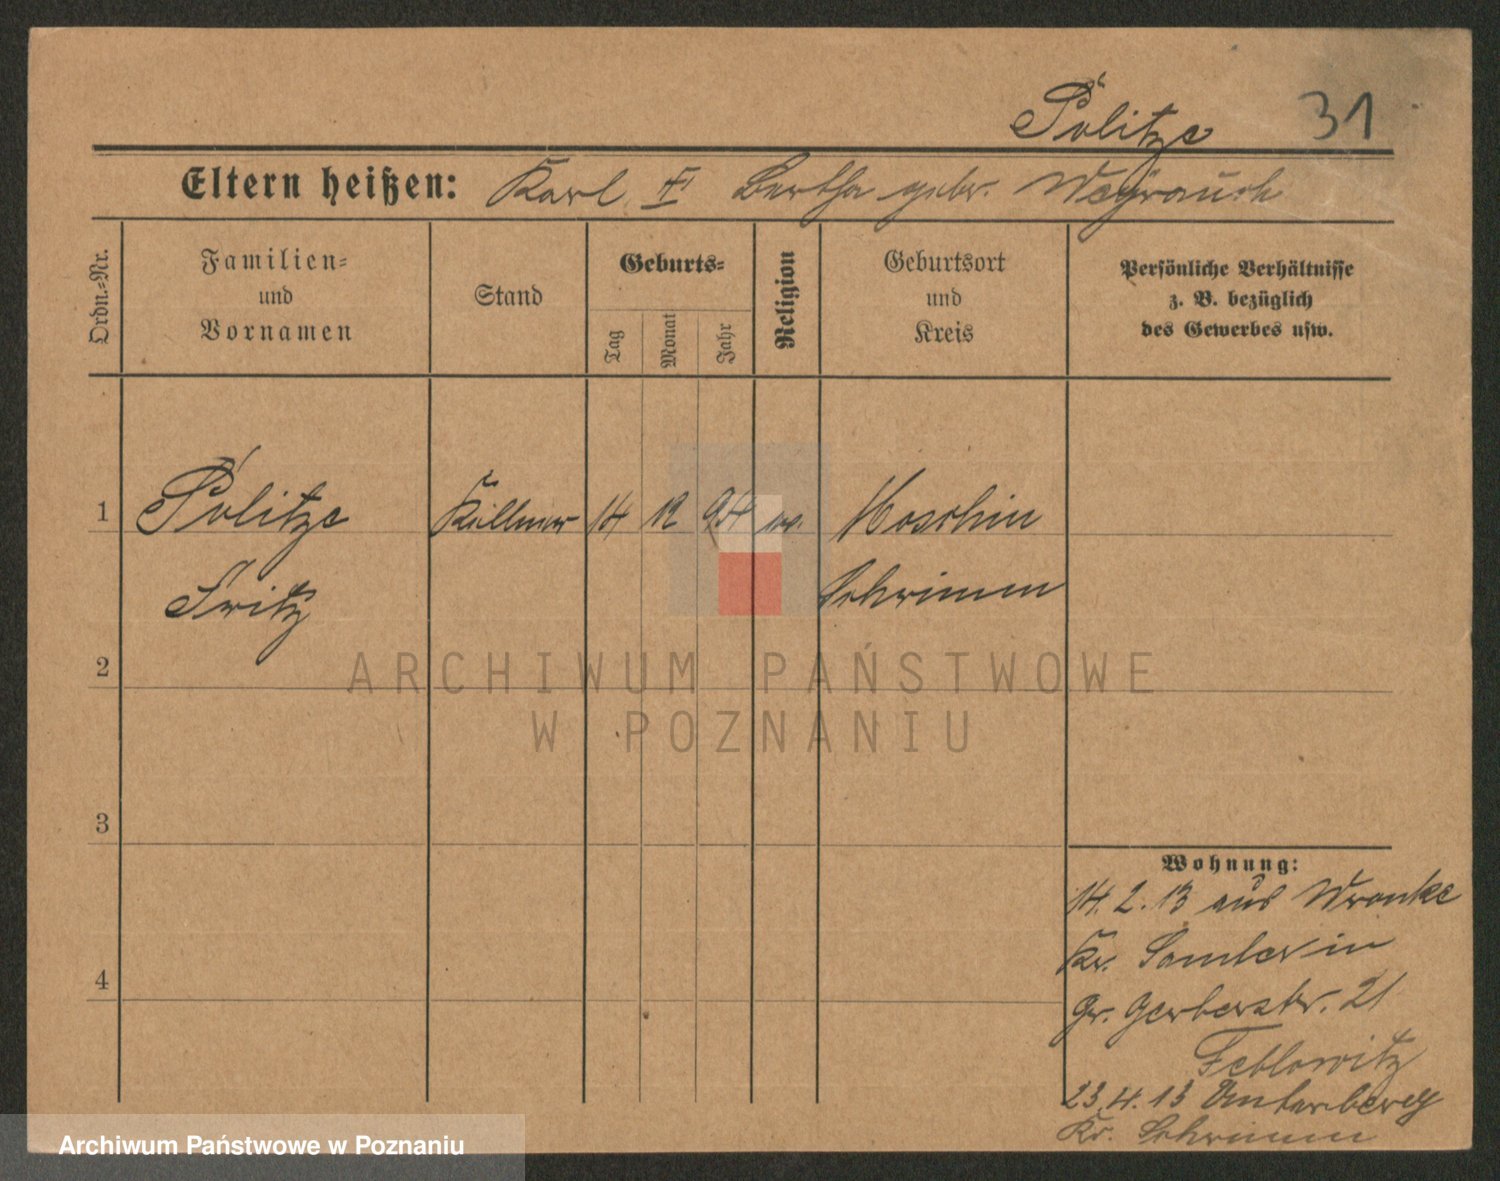 Politze
31
Eltern heißen: Karl u. Bertha gebr. Weyrauch
Ordn.-Nr.
Familien-
und
Vornamen
Stand
Geburts-
Tag
Monat
Jahr
Religion
Geburtsort
und
Kreis
Persönliche Verhältnisse
z. B. bezüglich
des Gewerbes usw.
1 Politze Kellner 14 12 94 ev. Moschin
Fritz Schrimm
2
3
4
Wohnung:
14. 2. 13 aus Wronke
Kr. Samter in
Gr. Gerberstr. 21
23. 4. 13 Unterberg
Kr. Schrimm
ARCHIWUM PAŃSTWOWE
W POZNANIU
Archiwum Państwowe w Poznaniu